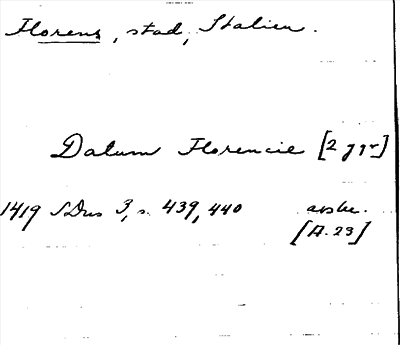 Florens, stad, Italien.
Datum Florencie [2 ggr]
1419 SDns 3, s. 439, 440 avskr.
[A. 23]